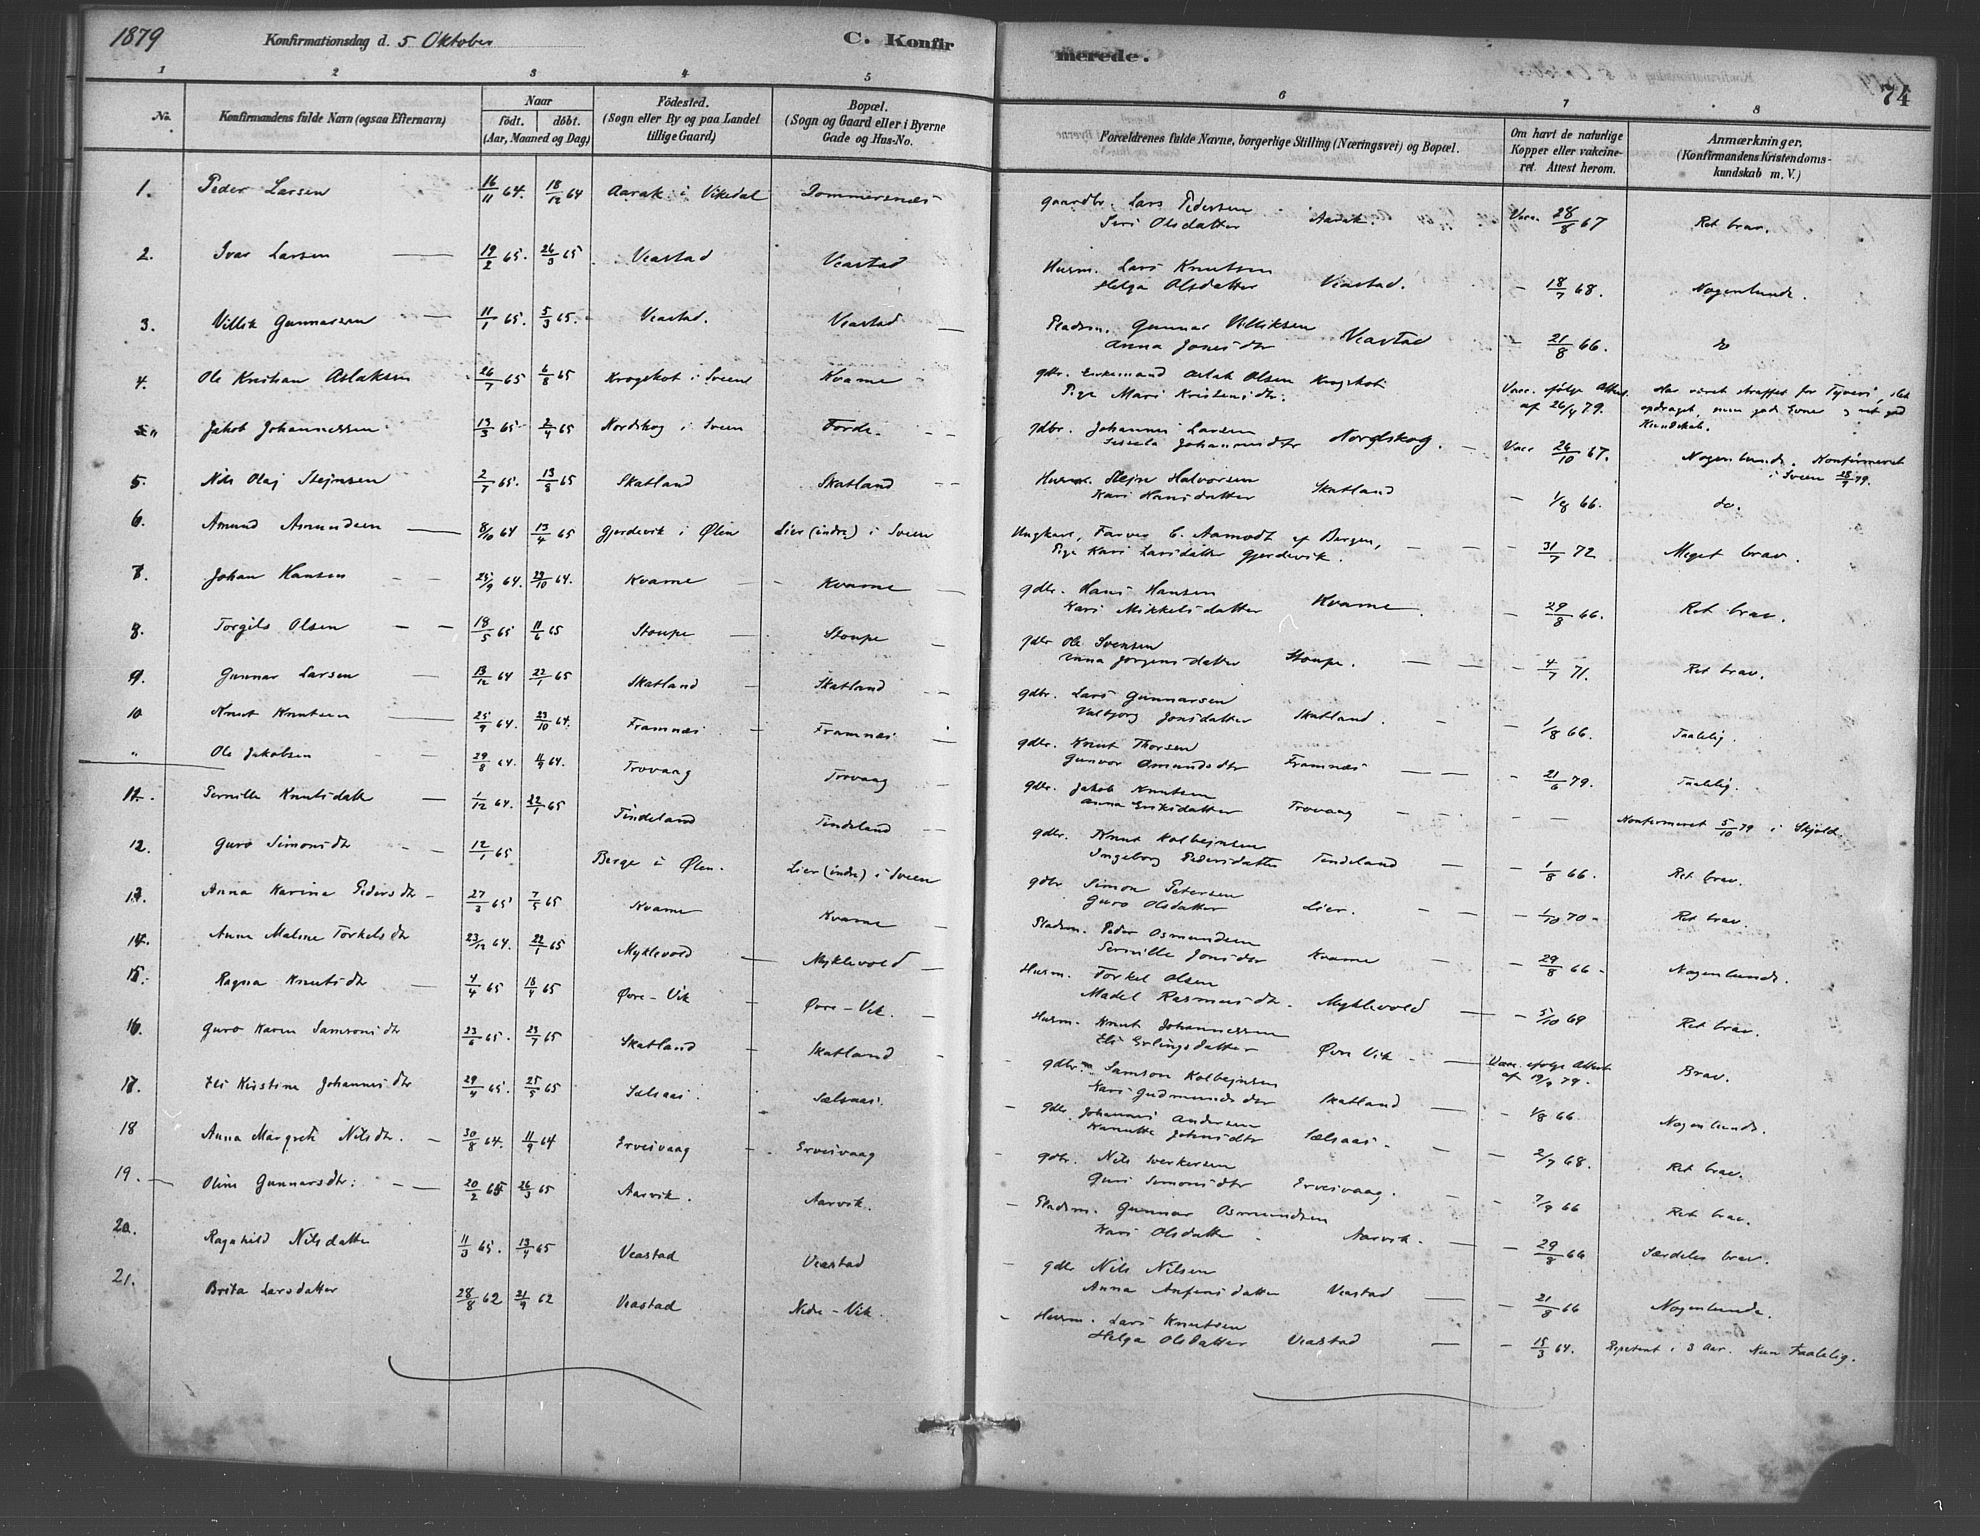 1879 Konfirmationsdag d. 5 Oktober C. Konfirmerede. 74
1 2 3 4 5 6 7 8
No. Konfirmandens fulde Navn (ogsaa Efternavn) Naar født. døbt. (Aar, Maaned og Dag) Fødested. (Sogn eller By og paa Landet tillige Gaard) Bopæl. (Sogn og Gaard eller i Byerne Gade og Hus-No. Forældrenes fulde Navne, borgerlige Stilling (Næringsvei) og Bopæl. Om havt de naturlige Kopper eller vakcineret Attest herom. Anmærkninger. (Konfirmandens Kristendomskundskab m. V.)
1. Peder Larsen 16/11 64. 18/12 64 Aarak i Vikedal Dommersnæs gaardbr. Lars Pedersen
Siri Olsdatter Aarak. Vacc. 28/8 67 Ret brav.
2. Ivar Larsen 19/2 65. 26/3 65 Veastad Veastad Husm. Lars Knutsen
Helga Olsdatter Veastad. 18/7 68. Nogenlunde.
3. Villik Gunnarsen 11/1 65. 5/3 65. Veastad. Veastad Pladsm. Gunnar Villiksen
Anna Jonesdtr Veastad 21/8 66.
4. Ole Kristian Aslaksen 26/7 65 6/8 65 Krogskot i Sveen Kvame gdbr. Enkemand Aslak Olsen Krogskot
Pige Mari Kristensdtr. Vacc. ifølge Attest af 26/4 79. Har været straffet for Tyveri, slet opdraget, men god Evne og ret god Kundskab.
" Jakob Johannessen 13/3 65 2/4 65 Nordskog i Sveen Førde. gdbr. Johannes Larsen
Johannesdtr Nordskog. Vacc 26/10 67. Nogenlunde. Konfirmeret i Sveen 28/9 79.
5. Nils Olaj Stejnsen 2/7 65. 13/8 65 Skatland Skatland Husm. Stejne Halvorsen
Kari Hansdatter Skatland 1/8 66. do.
6. Amund Amundsen 8/10 64 13/4 65 Gjerdevik i Ølen Lier (indre) i Sveen Ungkarl, Farver C. Aamodt af Bergen,
Pige Kari Larsdatter Gjerdevik. 31/7 72 Meget brav.
7. Johan Hansen 25/9 64. 23/10 64. Kvame Kvame gdbr. Hans Hansen
Kari Mikkelsdatter Kvame. 29/8 66. Ret brav.
8. Torgils Olsen 18/5 65 11/6 65 Stoupe Stoupe gdbr Ole Svensen
Anna Jørgensdatter Stoupe. 4/7 71. Ret brav.
9. Gunnar Larsen 13/12 64 22/1 65 Skatland Skatland gdbr. Lars Gunnarsen
Valbjorg Jonsdatter Skatland. 1/8 66. Taalelig.
10 Knut Knutsen 25/9 64. 23/10 64. Framnæs Framnæs gdbr. Knut Thorsen
Gunvor Amundsdtr Framnæs 21/6 79. Taalelig.
" Ole Jakobsen 29/8 64. 11/9 64. Trovaag Trovaag gdbr. Jakob Knutsen
Anna Eriksdatter Trovaag Konfirmeret 5/10 79 i Skjold.
11. Pernille Knutsdatter 1/12 64 22/1 65 Tindeland Tindeland gdbr. Knut Kolbejnsen
Ingeborg Pedersdatter Tindeland 1/8 66. Ret brav.
12. Guro Simonsdtr 12/1 65 Berge i Ølen. Lier (indre) i Sveen gdbr Simon Petersen
Guro Olsdatter Lier. 1/10 70 Ret brav.
13. Anna Karina Pedersdtr 27/3 65 7/5 65 Kvame Kvame Pladsm. Peder Osmundsen
Pernille Jonsdtr Kvame 29/8 66 Nogenlunde.
14. Anne Malene Torkelsdtr 23/12 64. 22/1 65 Myklevold Myklevold Husm. Torkel Olsen
Madel Rasmusdtr. Myklevold 5/10 69 Ret brav.
15. Ragna Knutsdtr 4/4 65 18/4 65 Øvre-Vik Øvre-Vik. Husm. Knut Johannessen
Eli Erlingsdatter Øvre Vik Vacc. ifølge Attest af 19/9 79. Brav.
16. Guro Karen Samsonsdtr 23/6 65. 23/7 65 Skatland Skatland gdbr. Samson Kolbejnsen
Kari Gudmundsdtr Skatland 1/8 66. Nogenlunde.
17. Eli Kristine Johannesdtr 29/4 65. 25/5 65 Sælsaas. Sælsaas. gdbr Johannes Andersen
Johnsdtr Sælsaas 2/7 68. Ret brav.
18 Anna Margrete Nilsdtr. 30/8 64. 11/9 64 Ervesvaag Ervesvaag gdbr. Nils Sverkersen
Guri Simonsdtr Ervesvaag. 7/9 66 Ret brav.
19. Oline Gunnarsdtr. 20/2 65 26/3 65 Aarvik. Aarvik. Pladsm. Gunnar Osmundsen
Kari Olsdatter Aarvik. 29/8 66 Særdeles brav.
20. Ragnhild Nilsdatter 11/3 65. 13/4 65 Veastad Veastad gdbr Nils Nilsen
Anna Anfinsdatter Veastad 21/8 66 Nogenlunde.
21. Brita Larsdatter 28/8 62 21/9 62 Veastad Nedre-Vik. Husm. Lars Knutsen
Helga Olsdatter Veastad 15/3 64. Repetent i 3 Aar. Neppe Taalelig.